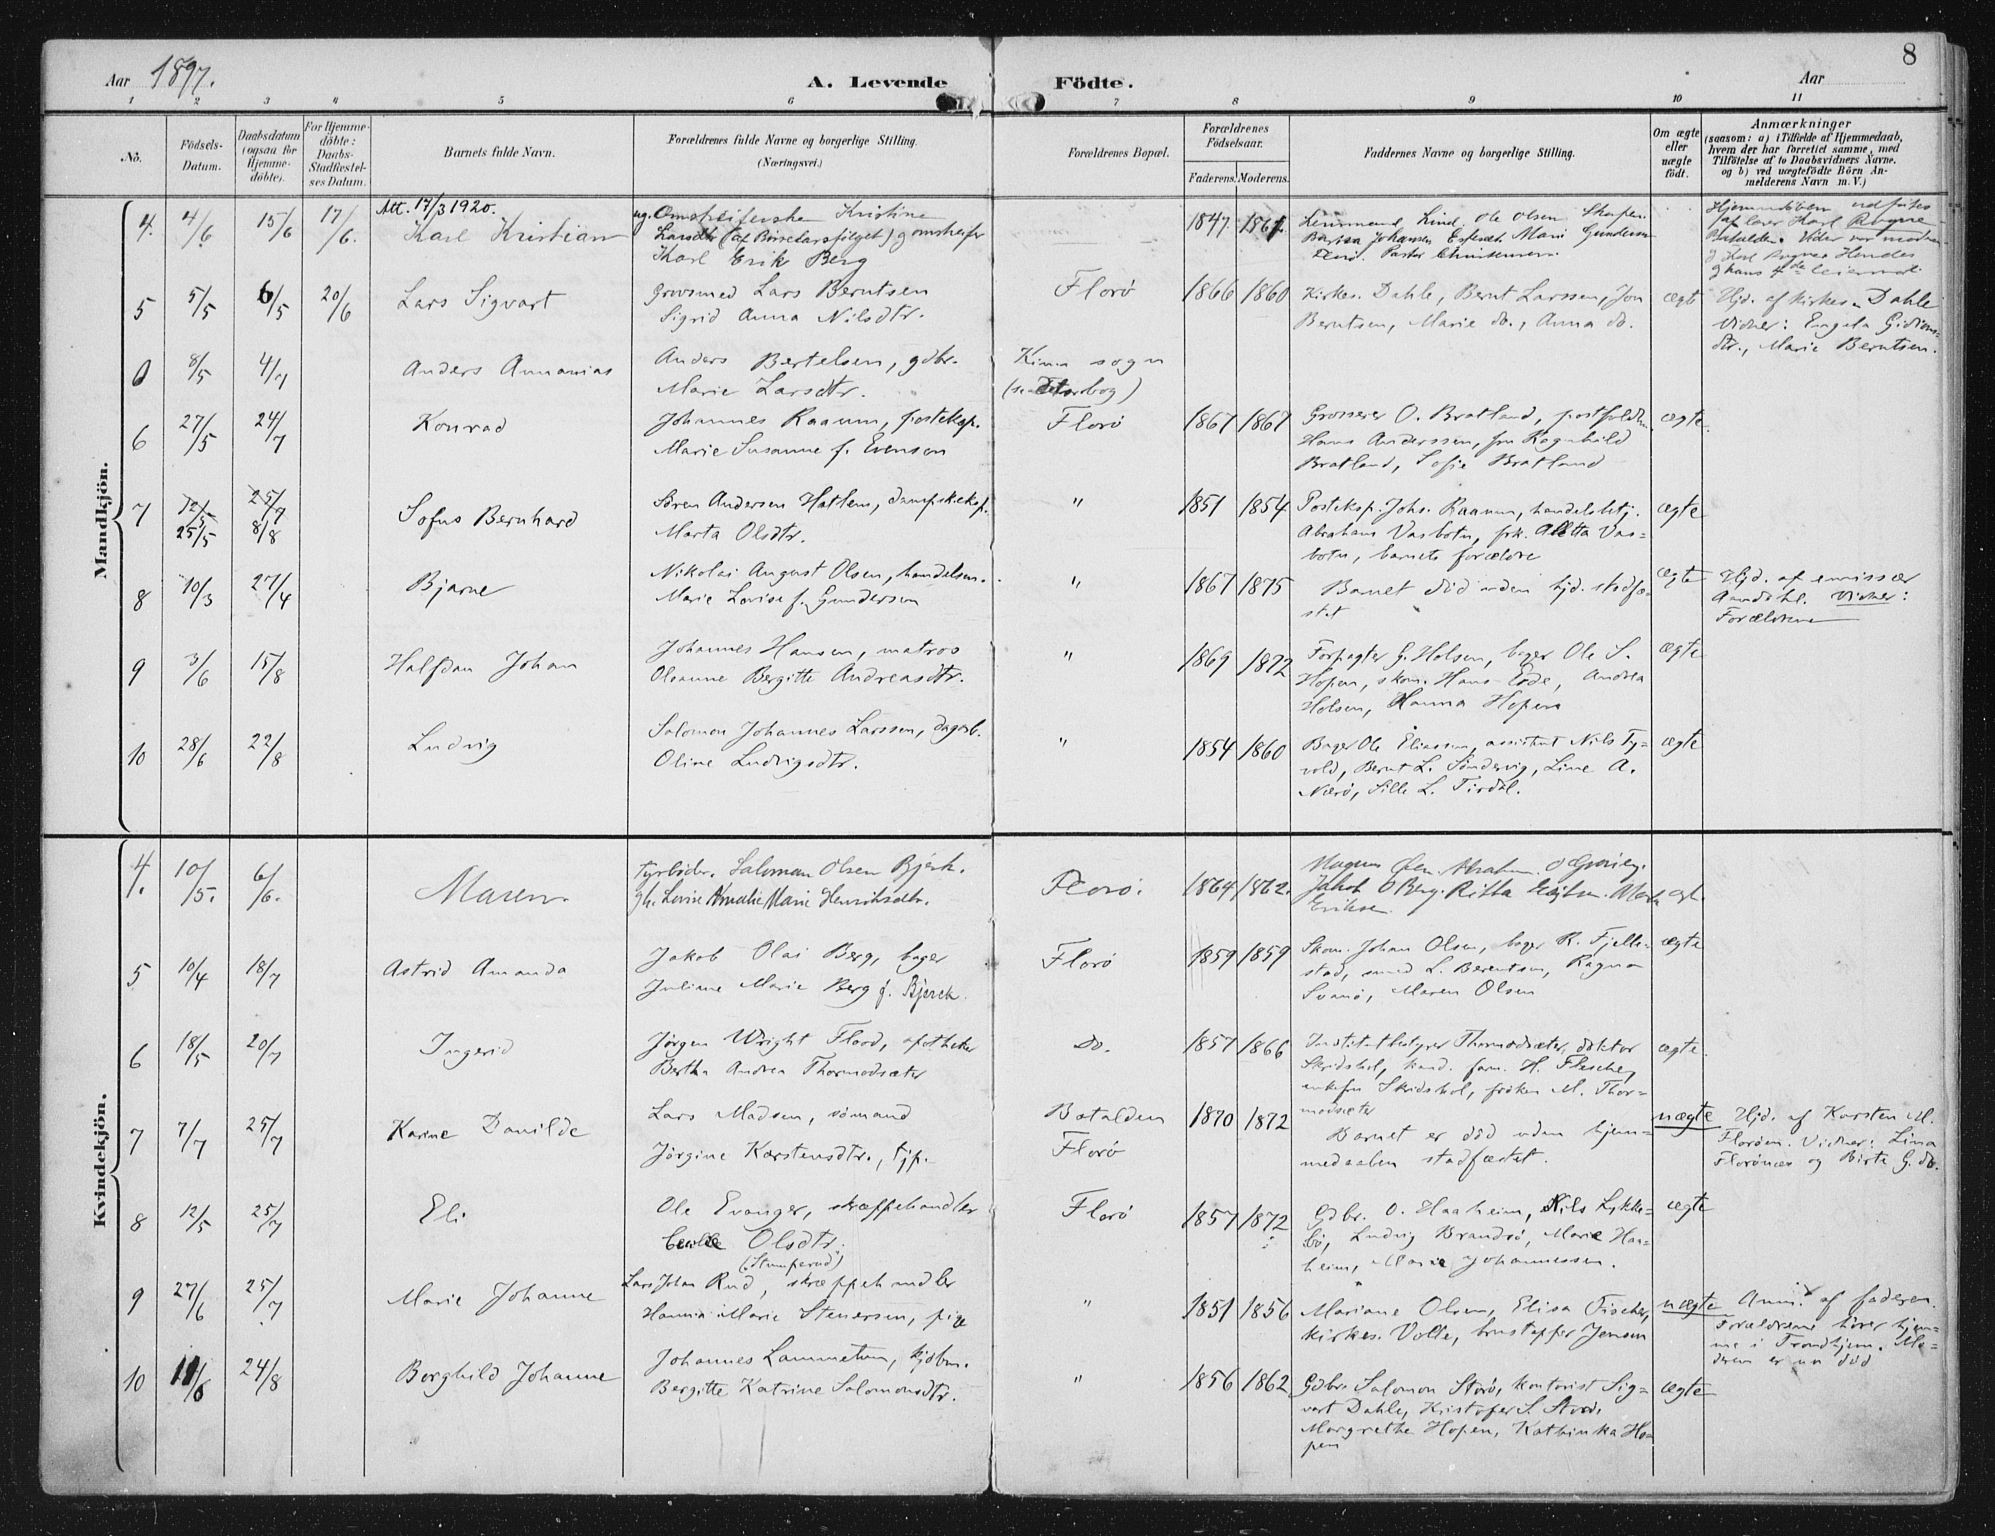 Aar 1897. A. Levende Födte. Aar 8
1 2 3 4 5 6 7 8 9 10 11
No. Födsels-Datum. Daabsdatum (ogsaa for Hjemmedöbte). For Hjemmedöbte: Daabs-Stadfæstelses Datum. Barnets fulde Navn. Forældrenes fulde Navne og borgerlige Stilling. (Næringsvei.) Forældrenes Bopæl. Forældrenes Födselsaar. Faderens. Moderens. Faddernes Navne og borgerlige Stilling. Om ægte eller uægte födt. Anmærkninger (saasom: a) i Tilfælde af Hjemmedaab, hvem der har forrettet samme, med Tilföielse af to Daabsvidners Navne. og b) ved uægtefödte Börn Anmelderens Navn m.V.)
Mandkjön.
Att. 17/3 1920.
4. 4/6 15/6 17/6. Karl Kristian ug. Kristine
Larsdtr
Karl Erik Berg
1847. 1861. Lind, Ole Olsen
Johansen Marie Gundersen
Florø. Pastor Christensen.
5 5/5 6/5 20/6 Lars Sigvart Grovsmed Lars Berntsen
Sigrid Anna Nilsdtr.
Florø 1866 1860 Kirkes. Dahle, Bernt Larssen, Jon
Berntsen, Marie do., Anna do.
ægte Hjd. af kirkes. Dahle
Vidner: Engela Gidions-
dtr., Marie Berntsen.
0 8/5 4/7 Anders Annanias Anders Bertelsen, gdbr.
Marie Larsdtr.
Kinn sogn
6 27/5 24/7 Konrad Johannes Raaum, posteksp.
Marie Susanne f. Evensen
Florø 1867 1867 Grosserer O. Bratland, postfuldm.
Hans Anderssen, fru Ragnhild
Bratland, Sofie Bratland
ægte.
7 12/5 25/7
25/5 8/8 Sofus Bernhard Søren Andersen Hatlem, dampskeksp.
Marta Olsdtr.
" 1851 1854 Posteksp. Johs. Raaum, handelsbetj.
Abraham Vasbotn, frk. Aletta Vas-
botn, barnets forældre
ægte
8 10/3 27/4 Bjarne Nikolai August Olsen, handelsm.
Marie Lovise f. Gundersen
" 1867 1875 Barnet død uden hjd. stadfæ-
stet
ægte Hjd. af emissær
Aamdahl. Vidner:
Forældrene
9 3/6 15/8 Halfdan Johan Johannes Hansen, matros
Olsanne Bergitte Andreasdtr.
" 1869 1872 Forpagter G. Holsen, bager Ole S.
Hopen, skom. Hans Eide, Andrea
Holsen, Hanna Hopen
ægte
10 28/6 22/8 Ludvig Salomon Johannes Larssen, dagarb.
Oline Ludvigsdtr.
" 1854 1860 Bager Ole Eliassen, assistent Nils Ty-
vold, Bernt L. Søndervig, Line A.
Nærø, Sille L. Tirdal.
ægte
Kvindekjön.
4. 10/5. 6/6. Maren. Fyrbøder. Salomon Olsen Bjerk.
gh. Lovise Amalie Marie Henriksdtr.
Florø. 1864 1862. Magnus Øen. Abraham
Jakob O Berg. Marta
Eriksen.
ægt.
5 10/4 18/7 Astrid Amanda Jakob Olai Berg, bager
Juliane Marie Berg f. Bjerck.
Florø 1859 1859 Skom. Johan Olsen, bager R. Fjelle-
stad, smed L. Berentsen, Ragna
Svanø, Maren Olsen
ægte
6 18/5 20/7 Ingerid Jørgen Wright Flood, apotheker
Bertha Andrea Thormodsæter
Do. 1857 1866 Institutbestyrer Thormodsæter, doktor
Skridshol, kand. farm. H. Flesche,
enkefru Skridshol, frøken M. Thor-
modsæter
ægte.
7 7/7 25/7 Karine Danilde Lars Madsen, sømand
Jørgine Karstensdtr., tjp.
Batalden
Florø
1870 1872 Barnet er død uden hjem-
medaaben stadfæstet.
uægte Hjd. af Karsten M.
Florøen. Vidner: Lina
Florønæs og Birte G. do.
8 12/5 25/7 Eli Ole Evanger, skræppehandler
Olsdtr.
Florø 1857 1872 Gdbr. O. Haaheim, Nils Lykke-
bø, Ludvig Brandsø, Marie Haa-
heim, Marie Johannessen.
ægte
9 27/6 25/7 Marie Johanne (Stumperud)
Lars Johan Rud, skræppehandler
Hanna Marie Stenersen, pige
" 1851 1856 Mariane Olsen, Elisa Fischer,
kirkes. Volle, Jensen
uægte Anm. af faderen.
Forældrene hører hjem-
me i Trondhjem. Mo-
deren er nu død
10 11/6 24/8 Borghild Johanne Johannes Lammetun, kjøbm.
Bergitte Katrine Salomonsdtr.
" 1856 1862 Gdbr. Salomon Storø, kontorist Sig-
vart Dahle, Kristofer S. Storø,
Margrethe Hopen, Kathinka Ho-
pen
ægte